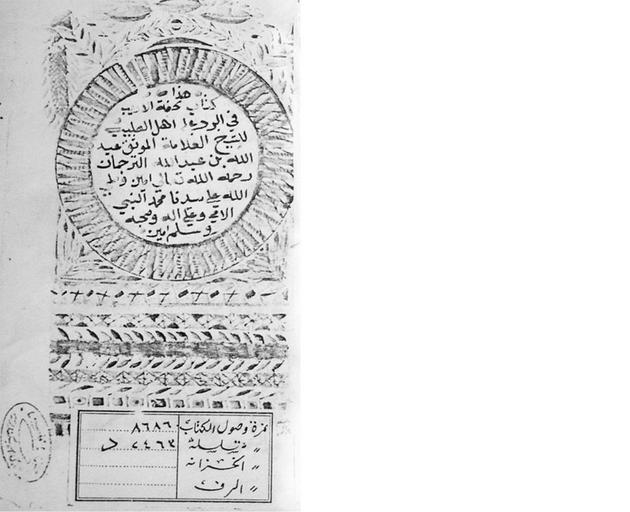 هذا
كتاب تحفة الاريب
في الرد على اهل الصليب
للشيخ العلامة الموثق عبد
الله بن عبد الله الترجمان
رحمه الله تعالى امين وصلى
الله على سيدنا محمد النبي
الامي وعلى اله وصحبه
وسلم امين
نمرة وصول الكتاب ٨٦٨٦
〃 ٧٤٦٣ د
〃 الخزانة
〃 الرف